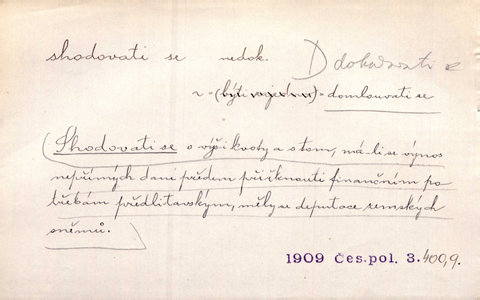 shodovati se nedok. D dokazovati
~ (býti zajedno) = domlouvati se
Shodovati se o výši kvoty a s tom, má-li se výnos
nepřímých daní předem přiřknouti finančním po
třebám předlitavským, měly se deputace zemských
sněmů.
1909 Čes. pol. 3. 400,9.